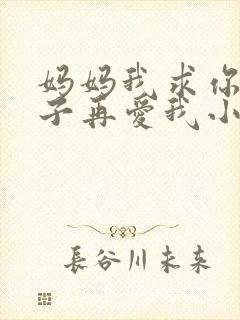 妈妈我求你
子再爱我小
長谷川未来